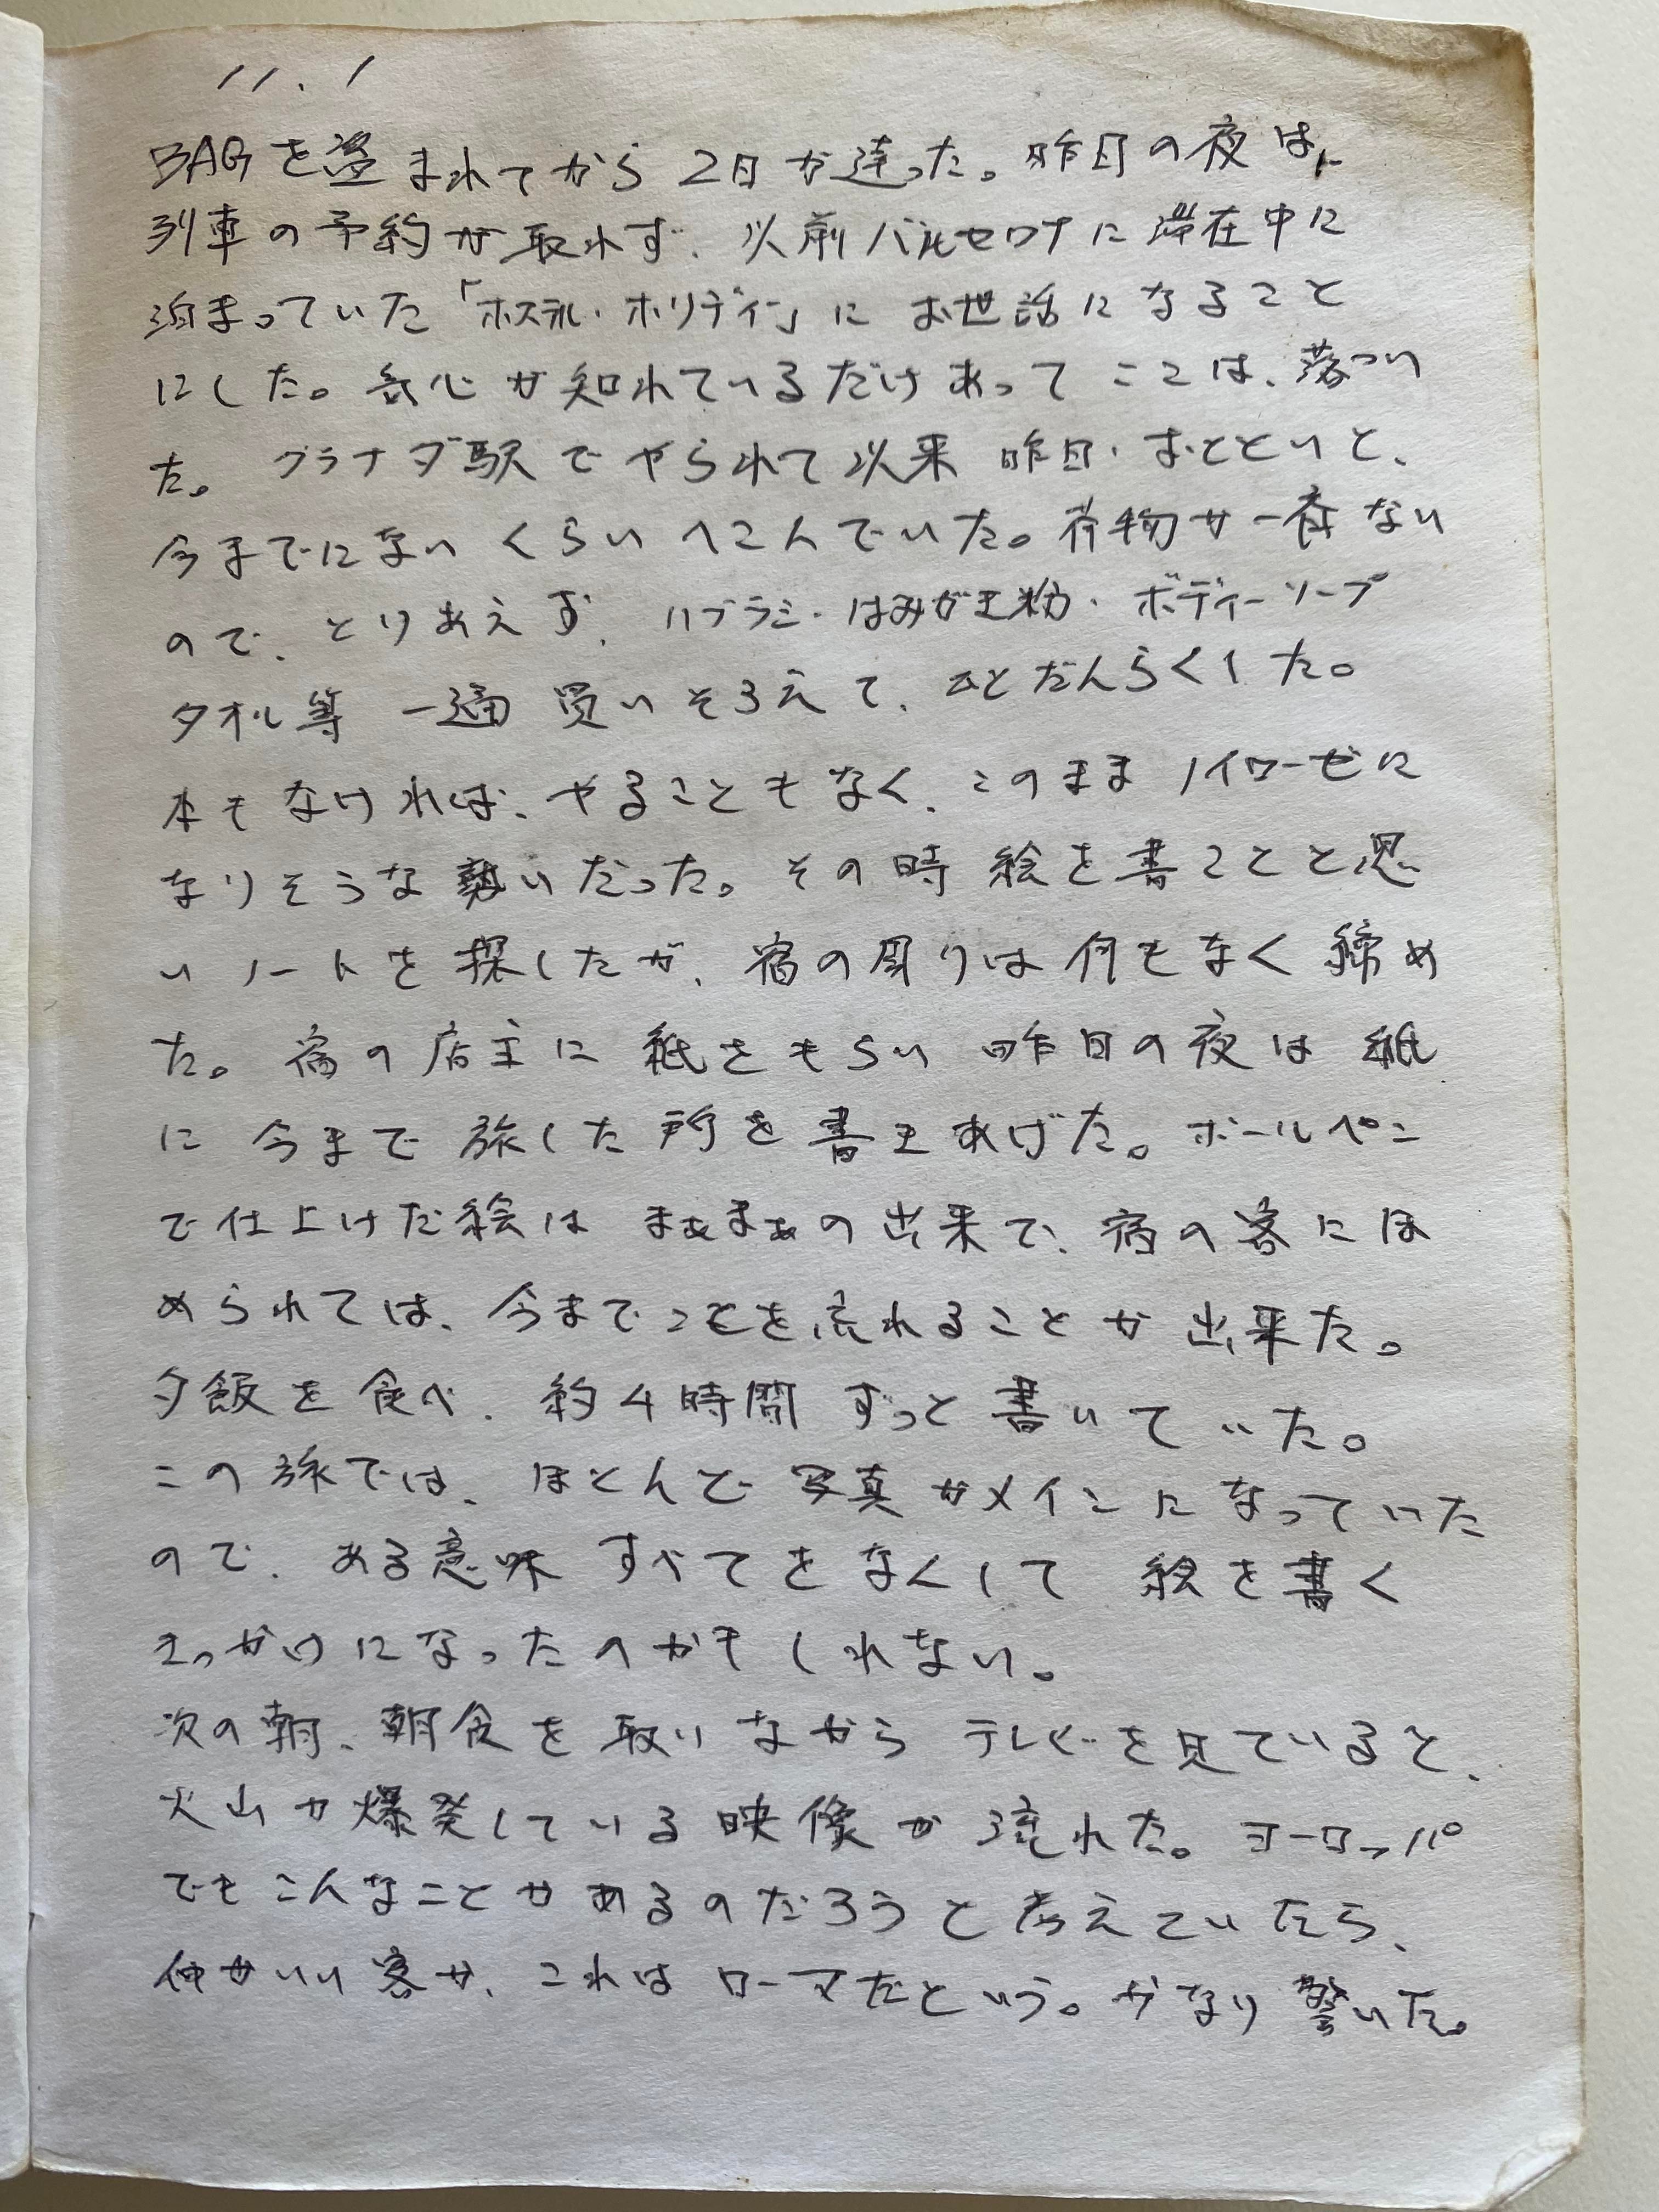 11.1
BAGを盗まれてから2日が達った。昨日の夜は、
列車の予約が取れず、以前バルセロナに滞在中に
泊まっていた「ホステル・ホリデイン」にお世話になること
にした。気心が知れているだけあってここは、落つい
た。グラナダ駅でやられて以来 昨日・おとといと、
今までにないくらいへこんでいた。荷物が一夜ない
ので、とりあえず、ハブラシ・はみがき粉・ボディーソープ
タオル等 一通買いそろえて、ひとだんらくした。
本もなければ、やることもなく、このままノイローゼに
なりそうな勢いだった。その時 絵を書こうと思
いノートを探したが、宿の周りは何もなく 締め
た。宿の店主に 紙をもらい 昨日の夜は 紙
に 今まで 旅した所を書きあげた。ボールペン
で仕上げた絵は まぁまぁの出来で、宿の客にほ
められては、今までことを忘れることが出来た。
夕飯を食べ、約4時間 ずっと書いていた。
この旅では、ほとんど写真がメインになっていた
ので、ある意味 すべてをなくして 絵を書く
きっかけになったのかもしれない。
次の朝、朝食を取りながら テレビを見ていると、
火山が爆発している映像が流れた。ヨーロッパ
でもこんなことがあるのだろうと考えていたら、
仲がいい客が、これはローマだという。かなり驚いた。